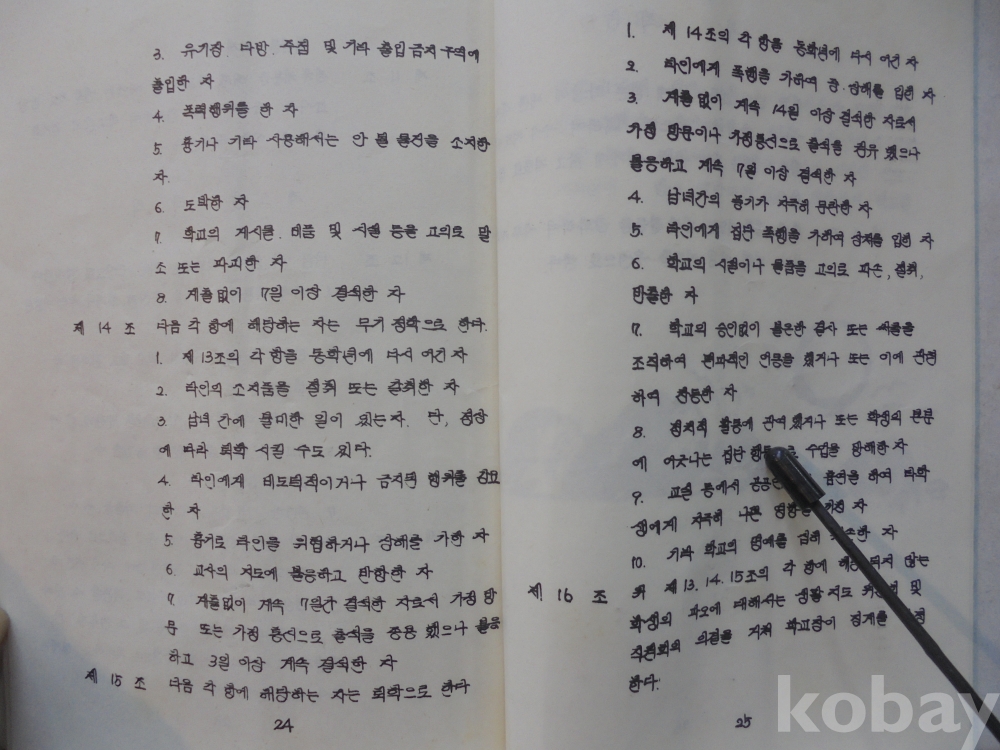 3. 유기장. 다방. 주점 및 기타 출입금지구역에
출입한 자
4. 폭력행위를 한 자
5. 흉기나 기타 사용해서는 안 될 물건을 소지한
자.
6. 도박한 자
7. 학교의 게시물. 비품 및 시설 등을 고의로 말
소 또는 파괴한 자
8. 계출없이 7일 이상 결석한 자
제 14 조 다음 각 항에 해당하는 자는 무기 정학으로 한다.
1. 제 13조의 각 항을 동학년에 다시 어긴 자
2. 타인의 소지품을 절취 또는 갈취한 자
3. 남녀 간에 불미한 일이 있는자. 단, 정상
에 따라 퇴학 시킬 수도 있다.
4. 타인에게 비도덕적이거나 금지된 행위를 강요
한 자
5. 흉기로 타인을 위협하거나 상해를 가한 자
6. 교사의 지도에 불응하고 반항한 자
7. 계출없이 계속 7일간 결석한 자로서 가정 방
문 또는 가정 통신으로 출석을 종용 했으나 불응
하고 3일 이상 계속 결석한 자
제 15 조 다음 각 항에 해당하는 자는 퇴학으로 한다
24
1. 제 14조의 각 항을 동학년에 다시 어긴 자
2. 타인에게 폭행을 가하여 중 상해를 입힌 자
3. 계출없이 계속 14일 이상 결석한 자로서
가정 방문이나 가정통신으로 출석을 권유 했으나
불응하고 계속 7일 이상 결석한 자
4. 남녀간의 풍기가 지극히 문란한 자
5. 타인에게 집단 폭행을 가하여 상처를 입힌 자
6. 학교의 시설이나 물품을 고의로 파손, 절취,
반출한 자
7. 학교의 승인없이 불온한 결사 또는 써클을
조직하여 편파적인 언동을 했거나 또는 이에 관련
하여 행동한 자
8. 정치적 활동에 관여 했거나 또는 학생의 본분
에 어긋나는 집단 수업을 방해한 자
9. 교실 등에서 하여 타학
생에게 지극히 나쁜 자
10. 기타 학교의 명예를 자
제 16 조 위 제 13. 14. 15조의 각 항에 않는
학생의 과오에 대해서는 생활 지도 및
직원회의 의결을 거쳐 학교장이 징계를
한다.
25
kobay